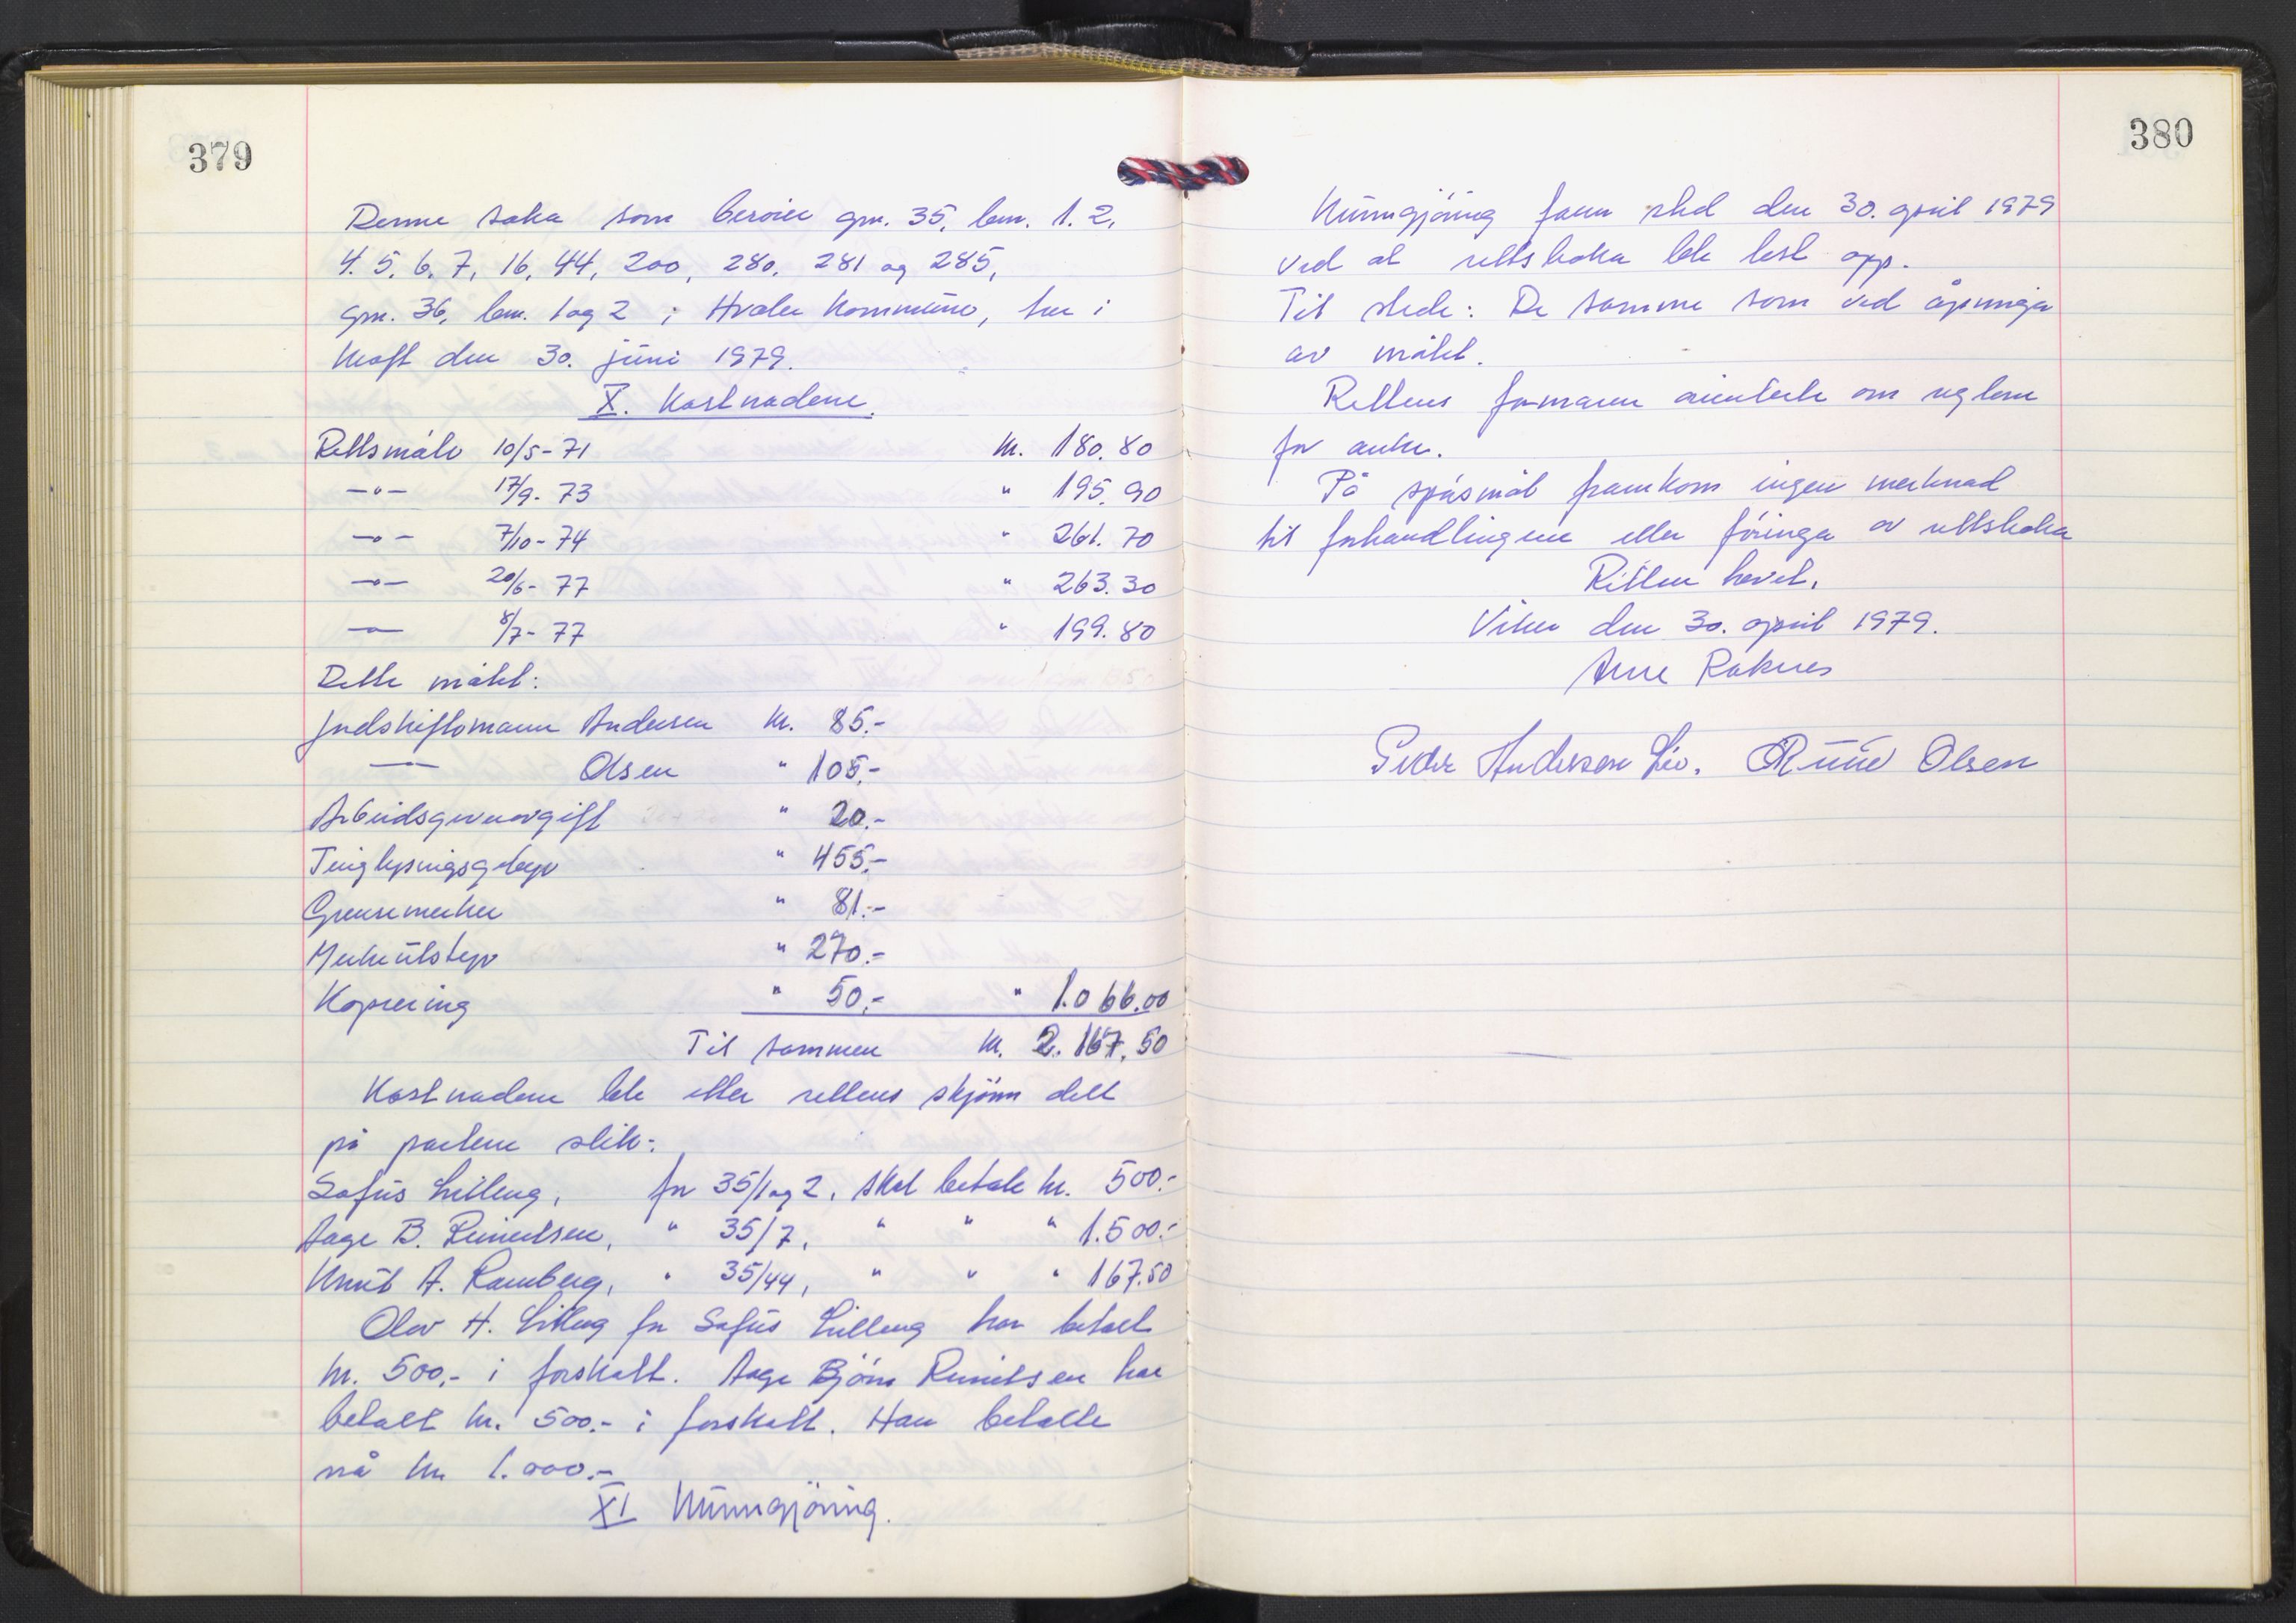 379
Denne saka som berører gnr. 35, bnr. 1. 2.
4. 5. 6. 7, 16, 44, 200, 280. 281 og 285,
gnr. 36, bnr. 1 og 2 i Hvaler kommune, trer i
kraft den 30. juni 1979.
X. Kostnadene.
Rettsmøte 10/5-71 kr. 180.80
-"- 17/9-73 " 195.90
-"- 7/10-74 " 261.70
-"- 20/6-77 " 263.30
-"- 8/7-77 " 199.80
Dette møtet:
Jordskiftemann Andersen kr. 85.-
-"- Olsen " 105.-
Arbeidsgiveravgift " 20.-
Tinglysingsgebyr " 455.-
Grensemerker " 81.-
Merkeutstyr " 270.-
Kopiering " 50.- " 1.066.00
Til sammen kr. 2.167.50
Kostnadene ble etter rettens skjønn delt
på partene slik:
Sofus Lilleng, for 35/1 og 2, skal betale kr. 500.-
Aage B. Reinertsen, " 35/7, " " " 1.500.-
Knut A. Ramberg, " 35/44, " " " 167.50
Olav H. Lilleng for Sofus Lilleng har betalt
kr. 500,- i forskott. Aage Bjørn Reinertsen har
betalt kr. 500.- i forskott. Han betalte
nå kr. 1.000.-
XI Kunngjøring.
380
Kunngjøring fann sted den 30. april 1979
ved at rettsboka ble lest opp.
Til stede: De samme som ved åpninga
av møtet.
Rettens formann orienterte om reglene
for anke.
På spørsmål framkom ingen merknad
til forhandlingene eller føringa av rettsboka
Retten hevet.
Viker den 30. april 1979.
Arne Raknes
Peder Andersen Liv. O Ruud Olsen